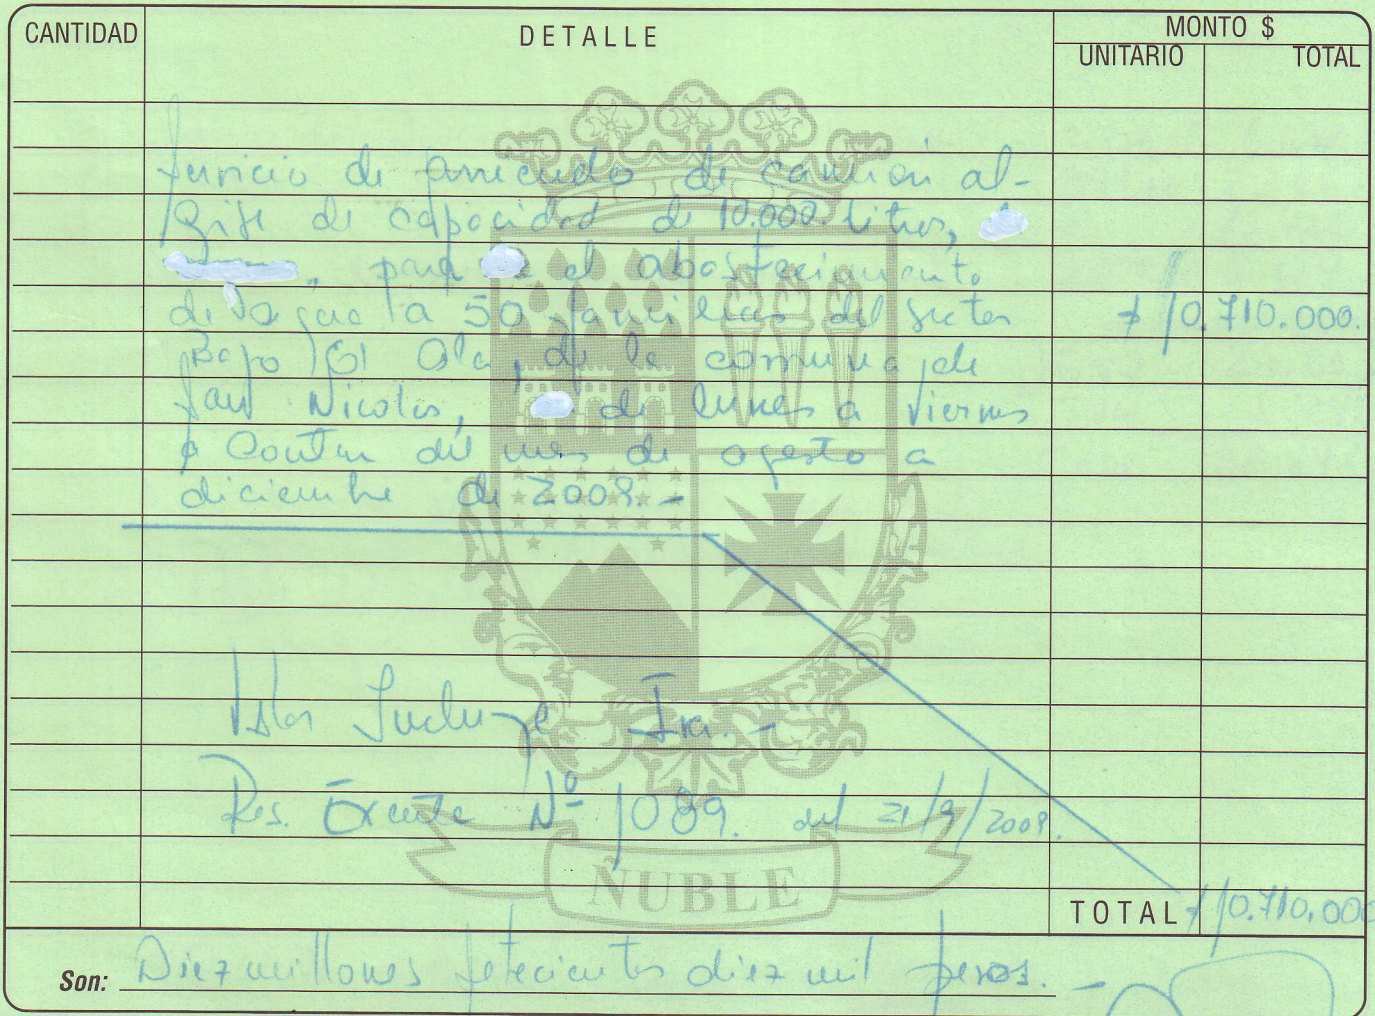 CANTIDAD DETALLE MONTO $
UNITARIO TOTAL
Servicio de arriendo de camión al-
gibe de capacidad de 10.000 litros,
, para el abastecimiento
de agua a 50 familias del sector
$ 10.710.000.
Bajo El Ala, de la comuna de
San Nicolás, de lunes a viernes
a contar del mes de agosto a
diciembre de 2009.-
Valor Incluye Iva.-
Res. Exenta Nº 1089. del 21/9/2009.
ÑUBLE
TOTAL $ 10.710.000
Son: Diez millones setecientos diez mil pesos.-